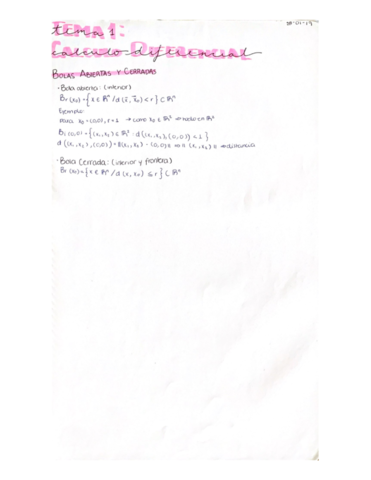 TEMA 1:
CALCULO DIFERENCIAL
tema 1
calculo diferencial
BOLAS ABIERTAS Y CERRADAS
- Bola abierta: (interior)
Br (x₀) = { x ∈ ℝⁿ / d (x̄, x̄₀) < r } ⊂ ℝⁿ
Ejemplo:
x₀ = (0,0), r = 1 → como x₀ ∈ ℝⁿ ⇒ en ℝⁿ
B₁ (0,0) = { (x₁, x₂) ∈ ℝⁿ : d ((x₁, x₂), (0,0)) < 1 }
d ((x₁, x₂), (0,0)) = ‖(x₁, x₂) - (0,0)‖ = ‖ (x₁, x₂) ‖ ⇒ distancia
- Bola Cerrada: (interior y frontera)
Br (x₀) = { x ∈ ℝⁿ / d (x, x₀) ≤ r } ⊂ ℝⁿ